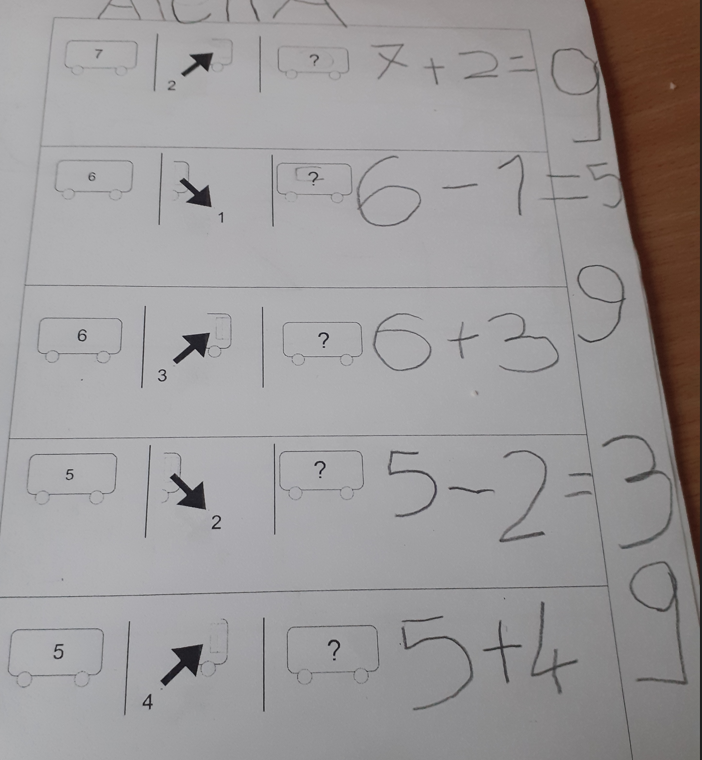 7 2 ? 7 + 2 = 9
6 1 ? 6 - 1 = 5
6 3 ? 6 + 3 9
5 2 ? 5 - 2 = 3
5 4 ? 5 + 4 9